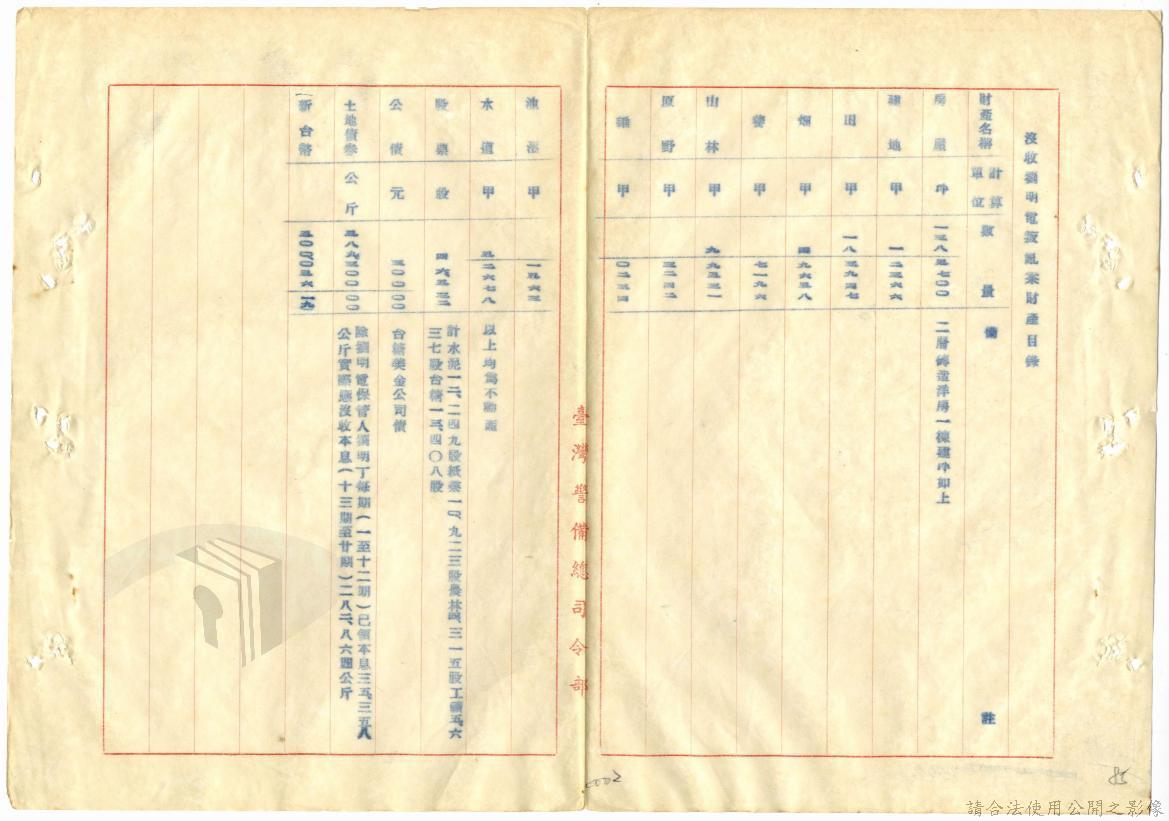 沒收劉明電叛亂案財產目錄
財產名稱 計算單位 數量 備註
房屋 坪 二層磚造洋房一棟建坪如上
建地 甲 一二三六六
田 甲 一八三九四七
畑 甲 四九六五八
甲 七一九六
山林 甲 九九五三一
原野 甲 三二四二
甲 〇二三四
池沼 甲 一五六三
水道 甲 二六七八 以上均為不動產
股票 股 計水泥一二、二四九股紙業一〇、九二三股農林四、三一五股工礦五、六三七股台糖一三、四〇八股
公債 元 三〇〇〇〇 台糖美金公司債
土地債券 公斤 除劉明電保管人劉明丁每期(一至十二期)已領本息三五、三五八公斤實際應沒收本息(十三期至廿期)二八二、八六四公斤
新台幣
臺灣警備總司令部
85
請合法使用公開之影像